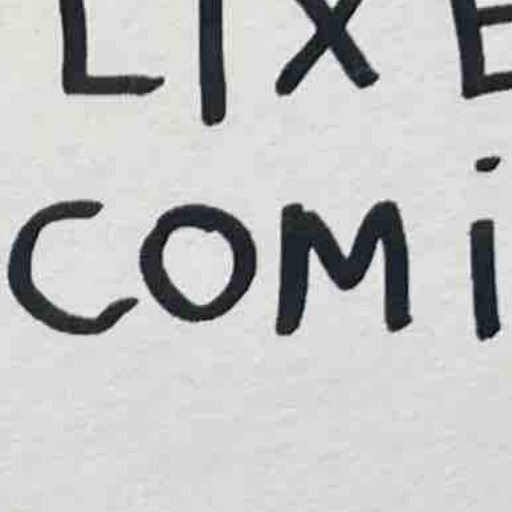 LIXE
COMi